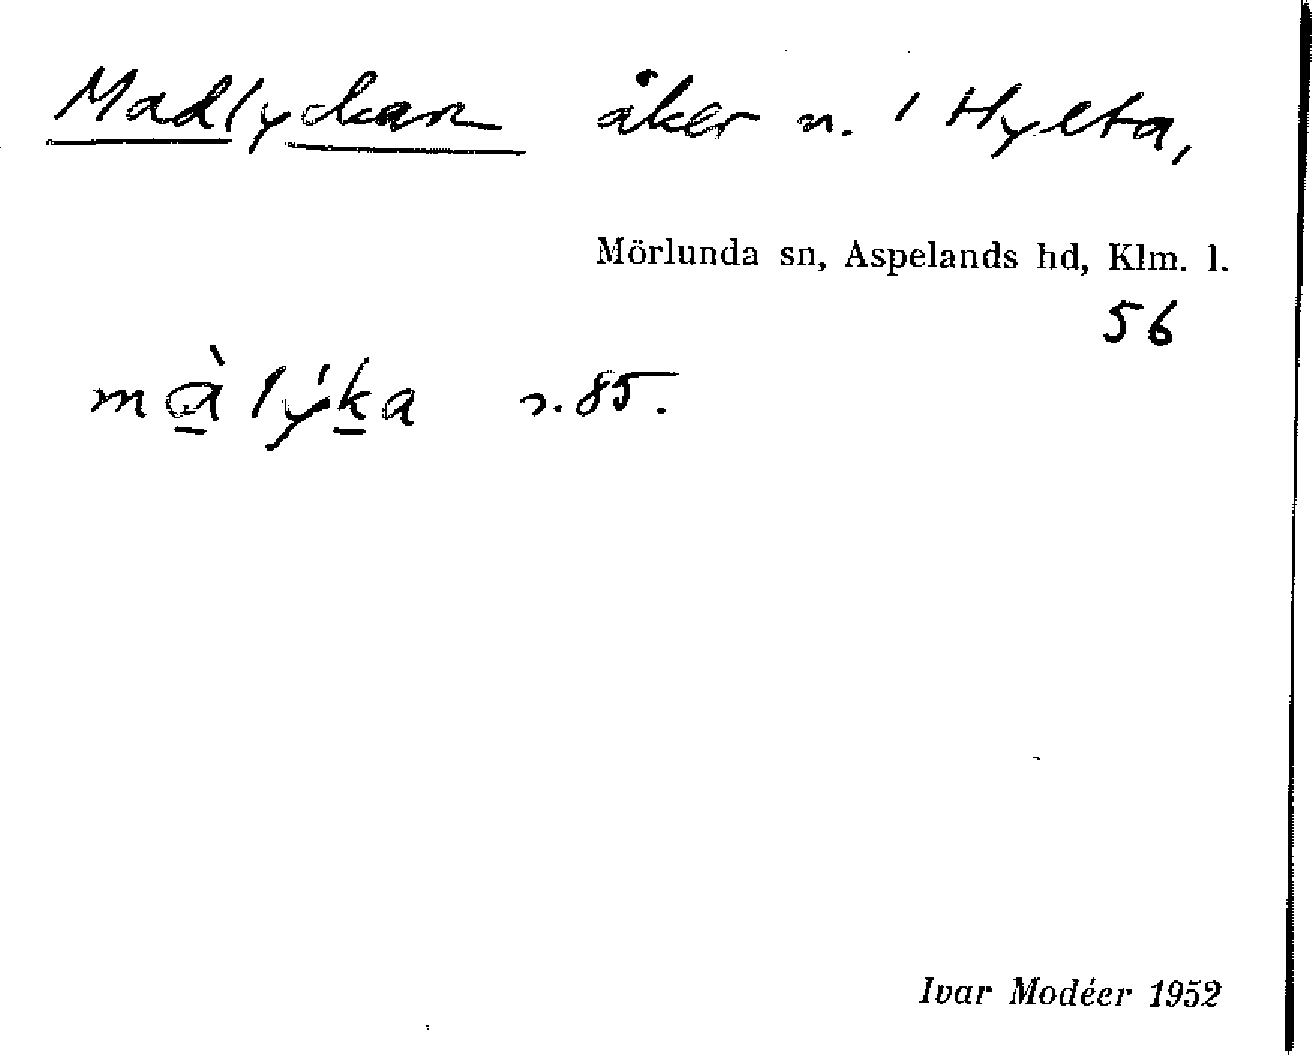 Madlyckan åker n. i Hylta,
Mörlunda sn, Aspelands hd, Klm. l.
56
màlýka s. 85.
Ivar Modéer 1952